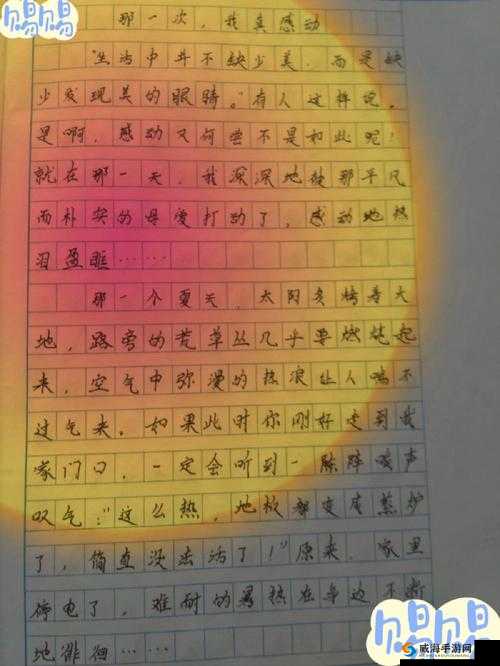 赐赐
那一次，我真感动
“生活中并不缺少美，而是缺
少发现美的眼睛。”有人这样说。
是啊，感动又何尝不是如此呢！
就在那一天，我深深地被那平凡
而朴实的母爱打动了，感动地热
泪盈眶……
那一个夏天，太阳炙烤着大
地，路旁的荒草丛几乎要燃烧起
来，空气中弥漫的热浪让人喘不
过气来。如果此时你刚好走到我
家门口，一定会听到一阵阵唉声
叹气：“这么热，地板都变成蒸炉
了，简直没法活了！”原来，家里
停电了，难耐的暑热在身边不断
地徘徊……
赐赐
威海手游网